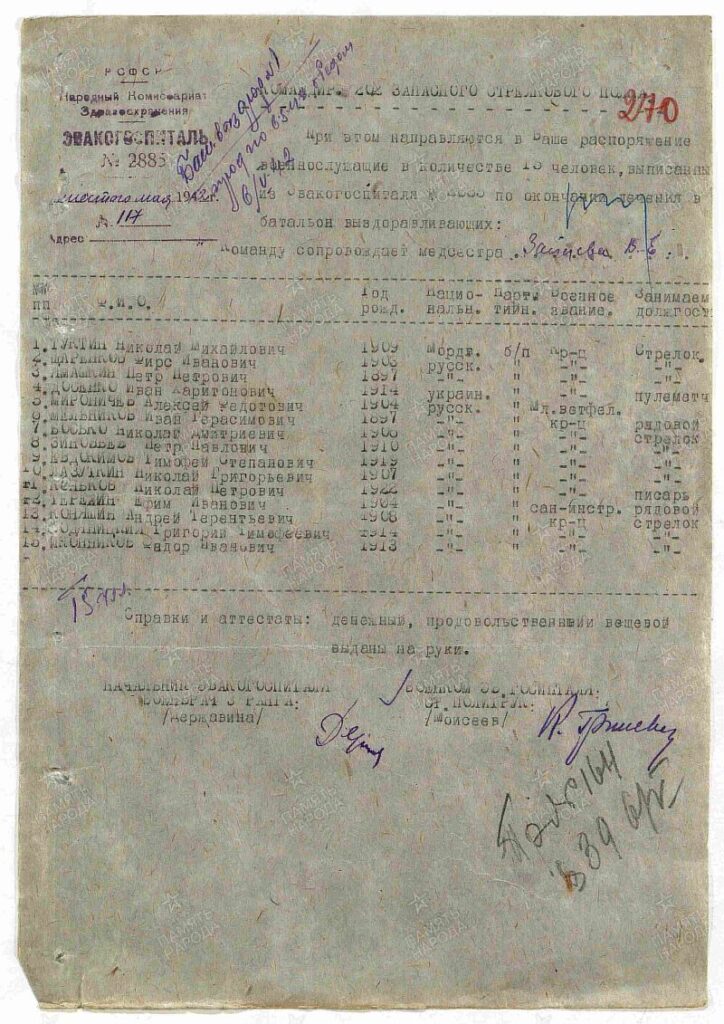 РСФСР
Народный Комиссариат
Здравоохранения
ЭВАКОГОСПИТАЛЬ
№ 2885
мая 1942 г.
№ 117
Адрес
КОМАНДИРУ 202 ЗАПАСНОГО СТРЕЛКОВОГО ПОЛКА
270
При этом направляются в Ваше распоряжение
военнослужащие в количестве 15 человек, выписанны
из Эвакогоспиталя № 2885 по окончании лечения в
батальон выздоравливающих:
Команду сопровождает медсестра
№№ пп Ф.И.О. Год рожд. Нацио- нальн. Парт. тийн. Военное звание. Занимаем должност
1. ТУКТИН Николай Михайлович 1909 Мордв. б/п Кр-ц Стрелок.
2. Фирс Иванович 1908 русск. " -"- -"-
3. Петр Петрович 1897 -"- " -"- -"-
4. ДОЦЕНКО Иван Харитонович 1914 украин. " -"- пулеметч
5. МИРОНИЧЕВ Алексей Федотович 1904 русск. " Мл.ветфел.
6. МЕЛЬНИКОВ Иван Герасимович 1897 -"- " кр-ц рядовой
7. Николай Дмитриевич 1908 -"- " -"- стрелок
8. ЗИНОВЬЕВ Петр Павлович 1910 -"- " -"- -"-
9. ЕВДОКИМОВ Тимофей Степанович 1919 -"- " -"- -"-
10. ЛАЗУТКИН Николай Григорьевич 1907 -"- " -"- -"-
11. КЕНЬКОВ Николай Петрович 1922 -"- " -"- писарь
12. ТЕРЕХИН Ефим Иванович 1904 -"- " сан-инстр. рядовой
13. КОНЯШИН Андрей Терентьевич 1908 -"- " кр-ц стрелок
14. Григорий Тимофеевич 1914 -"- " -"- -"-
15. ИКОННИКОВ Фадор Иванович 1913 -"- " -"- -"-
Справки и аттестаты: денежный, продовольственныйи вещевой
выданы на руки.
НАЧАЛЬНИК ЭВАКОГОСПИТАЛЯ
ВОЕНВРАЧ 3 РАНГА:
/Державина/
ВОЕНКОМ ЭВ.ГОСПИТАЛЯ:
СТ.ПОЛИТРУК:
/Моисеев/
164
39
ПАМЯТЬ НАРОДА